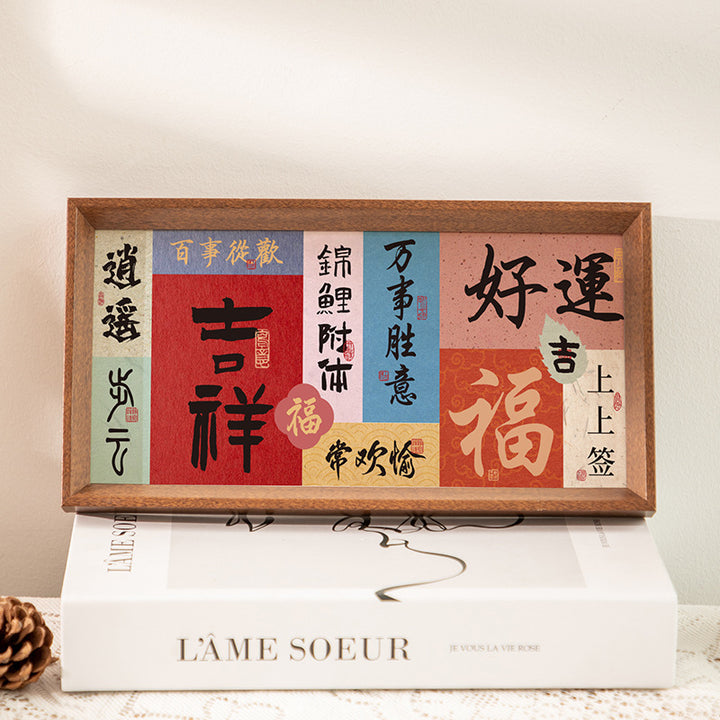 逍遥
步云
百事從歡
吉祥
福
錦鯉附体
万事胜意
常欢愉
好運
吉
福
上上签
L'ÂME SOEUR
L'ÂME SOEUR
JE VOUS LA VIE ROSE